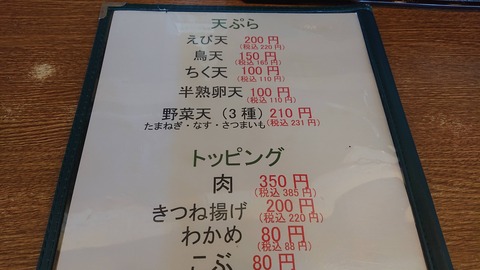 天ぷら
えび天 200円
(税込220円)
鳥天 150円
(税込165円)
ちく天 100円
(税込110円)
半熟卵天 100円
(税込110円)
野菜天(3種) 210円
たまねぎ・なす・さつまいも (税込231円)
トッピング
肉 350円
(税込385円)
きつね揚げ 200円
(税込220円)
わかめ 80円
(税込88円)
こぶ 80円